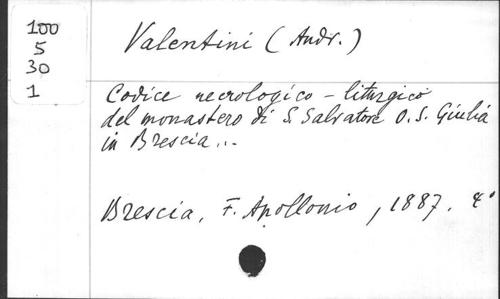 100
5
30
1
Valentini (Andr.)
Codice necrologico - liturgico
del monastero di S. Salvatore O. S. Giulia
in Brescia...
Brescia, F. Apollonio, 1887. 4°